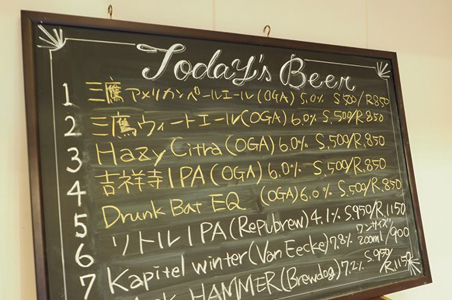 Today's Beer
1 三鷹アメリカンペールエール(OGA) 5.0% S,500/R,850
2 三鷹ウィートエール(OGA) 6.0% S,500/R,850
3 Hazy Citha(OGA) 6.0% S,500/R.850
4 吉祥寺IPA(OGA) 6.0% S,500/R.850
5 Drunk Bat EQ (OGA) 6.0% S,500/R.850
6 リトルIPA(Repubrew) 4.1% S950/R1150
7 Kapitel winter(Van Eecke) 7.8% ワンサイズ 200ml/900
HAMMER(Brewdog) 7.2% S.950/R1150